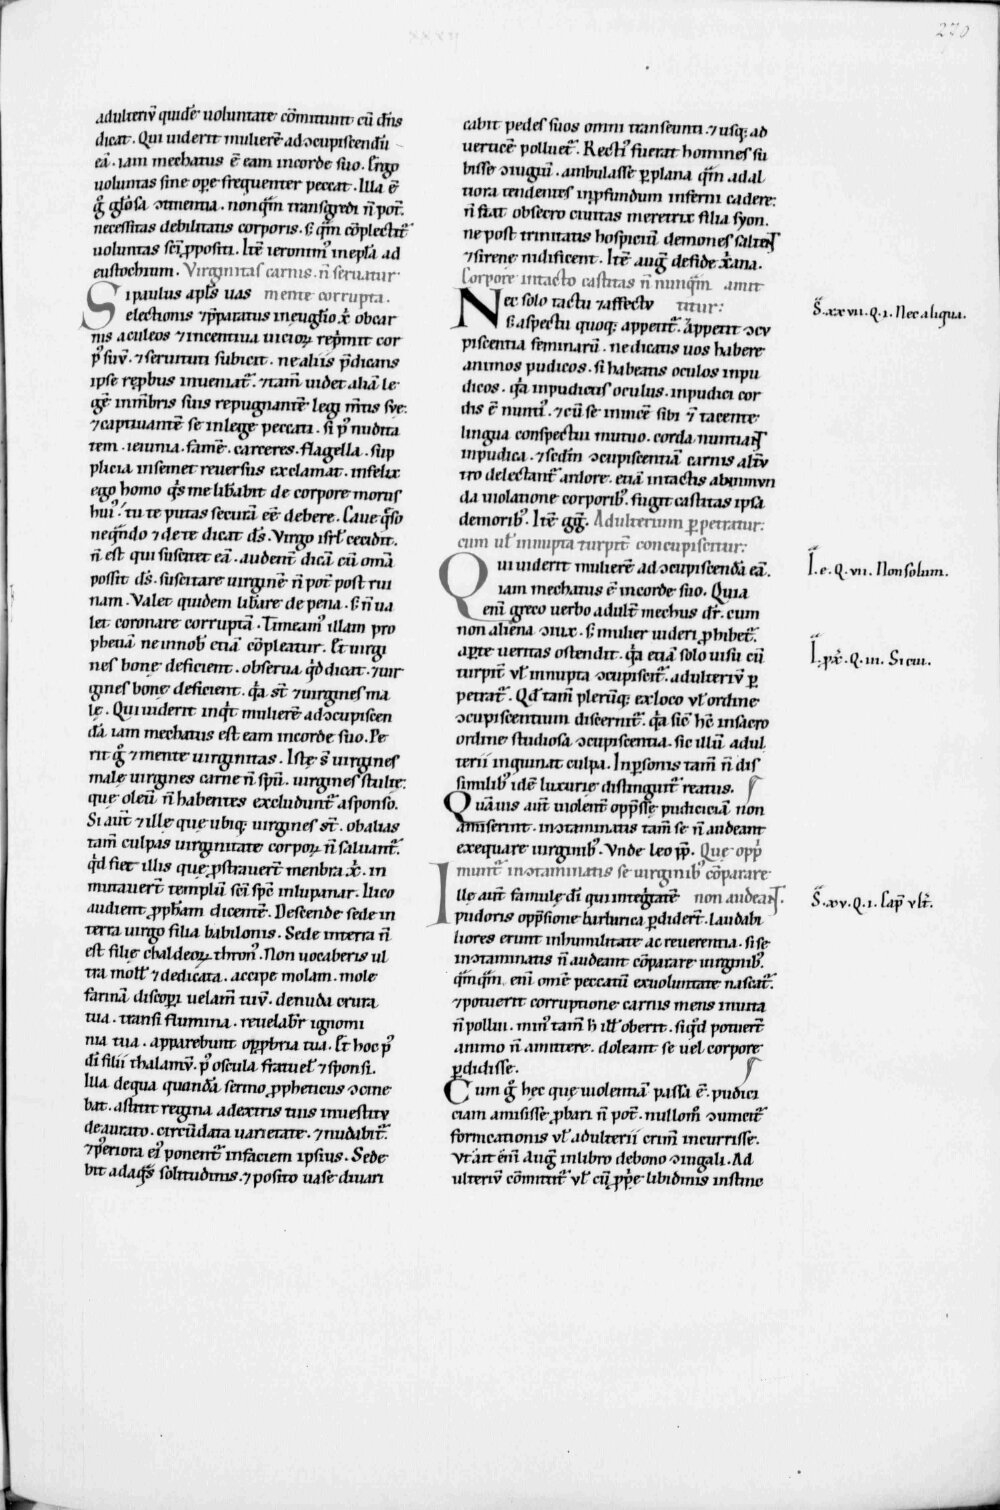 270
adulteriu᷒ quidē uoluntate cōmittunt cū dn̄s
dicat. Qui uiderit mulierē ad ɔcupiscendū
eā. iam mechatus ē eam incorde suo. Ergo
uoluntas sine oꝑe frequenter peccat. Illa ē
gͦ glosa ɔtinentia. non quā transgredi n̄ pot᷒.
necessitas debilitatis corporis. s; quā cōplectit᷒
uoluntas sc̄i ꝓpositi. Itē ieronim᷒ inepl̄a ad
eustochium. Virginitas carnis. n̄ seruatur
mente corrupta.
Si paulus apl̄s uas
electionis ⁊ p̄paratus ineuglīo xp̄i obcar
nis aculeos ⁊ incentiua uicioꝝ rep̄mit cor
p᷒ suū. ⁊ seruituti subicit. ne aliis p̄dicans
ipse reꝓbus inueniat᷒. ⁊ tam̄ uidet aliā le
gē inmēbris suis repugnantē legi m̄tis sue.
⁊ captiuantē se inlege peccati. si p᷒ nudita
tem. ieiunia. famē. carceres. flagella. sup
plicia insemet reuersus exclamat. infelix
ego homo qis me libabit de corpore mortis
hui᷒. tu te putas securā eē debere. Caue q̄so
neqn̄do ⁊ de te dicat ds̄. Virgo isrl̄ cecidit.
n̄ est qui suscitet eā. audent dicā cū omīa
possit ds̄. suscitare uirginē n̄ pot̄ post rui
nam. Valet quidem libare de pena. s; n̄ ua
let coronare corruptā. Timeam᷒ illam pro
phetiā ne in nob̄ etiā cōpleatur. Et uirgi
nes bone deficient. obserua qd̄ dicat. ⁊ uir
gines bone deficient. qa st̄ ⁊ uirgines ma
le. Qui uiderit inqt mulierē ad ɔcupiscen
dā iam mechatus est eam incorde suo. Pe
rit gͦ ⁊ mente uirginitas. Iste s̄t uirgines
male uirgines carne n̄ spū. uirgines stulte.
que oleū n̄ habentes excludunt᷒ asponso.
Si aut̄ ⁊ ille que ubiq; uirgines st̄. obalias
tam̄ culpas uirginitate corpoꝝ n̄ saluant᷒.
qd fiet illis que ꝓstrauert̄ menbra xp̄i. in
mutauert̄ templū sc̄i spc̄ in lupanar. Ilico
audient ꝓph̄am dicentē. Descende sede in
terra uirgo filia babilonis. Sede interra n̄
est filie chaldeoꝝ thron᷒. Non uocaberis ul
tra moll᷒ ⁊ dedicata. accipe molam. mole
farinā discoꝑi uelam̄ tuū. denuda crura
tua. transi flumina. reuelabr̄ ignomi
nia tua. apparebunt opꝓbria tua. Et hoc p᷒
di filii thalamū. p᷒ oscula fratuel᷒ ⁊ sponsi.
Illa dequa quondā sermo ꝓpheticus ɔcine
bat. astitit regina adextris tuis inuestitu
deaurato. circūdata uarietate. ⁊ nudabit᷒.
⁊ posteriora ei᷒ ponent᷒ infaciem ipsius. Sede
bit ad aqs solitudinis. ⁊ posito uase diuari
cabit pedes suos omni transeunti. ⁊ usq; ad
uerticē polluet᷒. Recti᷒ fuerat homines su
bisse ɔiugiū. ambulasse ꝑ plana quā ad al
tiora tendentes inꝓfundum inferni cadere.
n̄ fiat obsecro ciuitas meretrix filia syon.
ne post trinitatis hospiciū demones saltent
⁊ sirene nidificent. Itē aug᷒ defide xp̄iana.
Corpore intacto castitas n̄ nunqm̄ amit
titur:
Nec solo tactu ⁊ affectu
s; aspectu quoq; appetit᷒. Appetit ɔcu
piscentia feminarū. ne dicatis uos habere
animos pudicos. si habeatis oculos inpu
dicos. qa inpudicus oculus. inpudici cor
dis ē nunti᷒. ⁊ cū se inuicē sibi ⁊ tacente
lingua conspectu mutuo. corda nuntiant
inpudica. ⁊ scdm̄ ɔcupiscentiā carnis altu
tro delectant᷒ ardore. etiā intactis abinmun
da uiolatione corporib᷒. fugit castitas ipsa
de morib᷒. Itē gg᷒. Adulterium ꝑpetratur:
cum ul᷒ innupta turpit̄ concupiscitur:
Qui uiderit mulierē ad ɔcupiscendā eā.
iam mechatus ē incorde suo. Quia
enī greco uerbo adult̄ mechus dr̄. cum
non aliena ɔiux. s; mulier uideri ꝓhibet᷒.
aꝑte ueritas ostendit. qa etiā solo uisu cū
turpit̄ ul᷒ innupta ɔcupiscit᷒. adulteriū ꝑ
petrat᷒. Qd̄ tam̄ plerūq; ex loco ul᷒ ordine
ɔcupiscentium discernit᷒. qa sic̄ hc̄ insacro
ordine studiosa ɔcupiscentia. sic illū adul
terii inquinat culpa. Inꝑsonis tam̄ n̄ dis
similib᷒ idē luxurie distinguit᷒ reatus.
Quāuis aut̄ uiolent̄ opp̄sse pudiciciā non
amiserint. inɔtaminatis tam̄ se n̄ audeant
exequare uirginib᷒. Vnde leo pp̄. Que opp̄
munt᷒ inɔtaminatis se uirginib᷒ cōparare
non audeant.
Ille aut̄ famule di qui integritatē
pudoris opp̄sione barbarica ꝑdidert̄. laudabi
liores erunt inhumilitate ac reuerentia. si se
inɔtaminatis n̄ audeant cōparare uirginib᷒.
quāquā enī omē peccatū exuoluntate nascat᷒.
⁊ potuerit corruptione carnis mens inuita
n̄ pollui. min᷒ tam̄ h ill᷒ oberit. si qd potuert̄
animo n̄ amittere. doleant se uel corpore
ꝑdidisse.
Cum gͦ hec que uiolentiā passa ē. pudici
ciam amisisse ꝓbari n̄ pot̄. nullom̄ ɔuincit᷒
fornicationis ul᷒ adulterii crim̄ incurrisse.
Vt ait enī Aug᷒ inlibro debono ɔiugali. Ad
ulteriū cōmittit᷒ ul᷒ cū ꝓp̄e libidinis instinc
S. xxvii. Q. i. Nec aliqua.
I. e. Q. vii. Non solum.
I. px̄. Q. iii. Sicui.
S. xv. Q. i. Cap̄ vlt᷒.